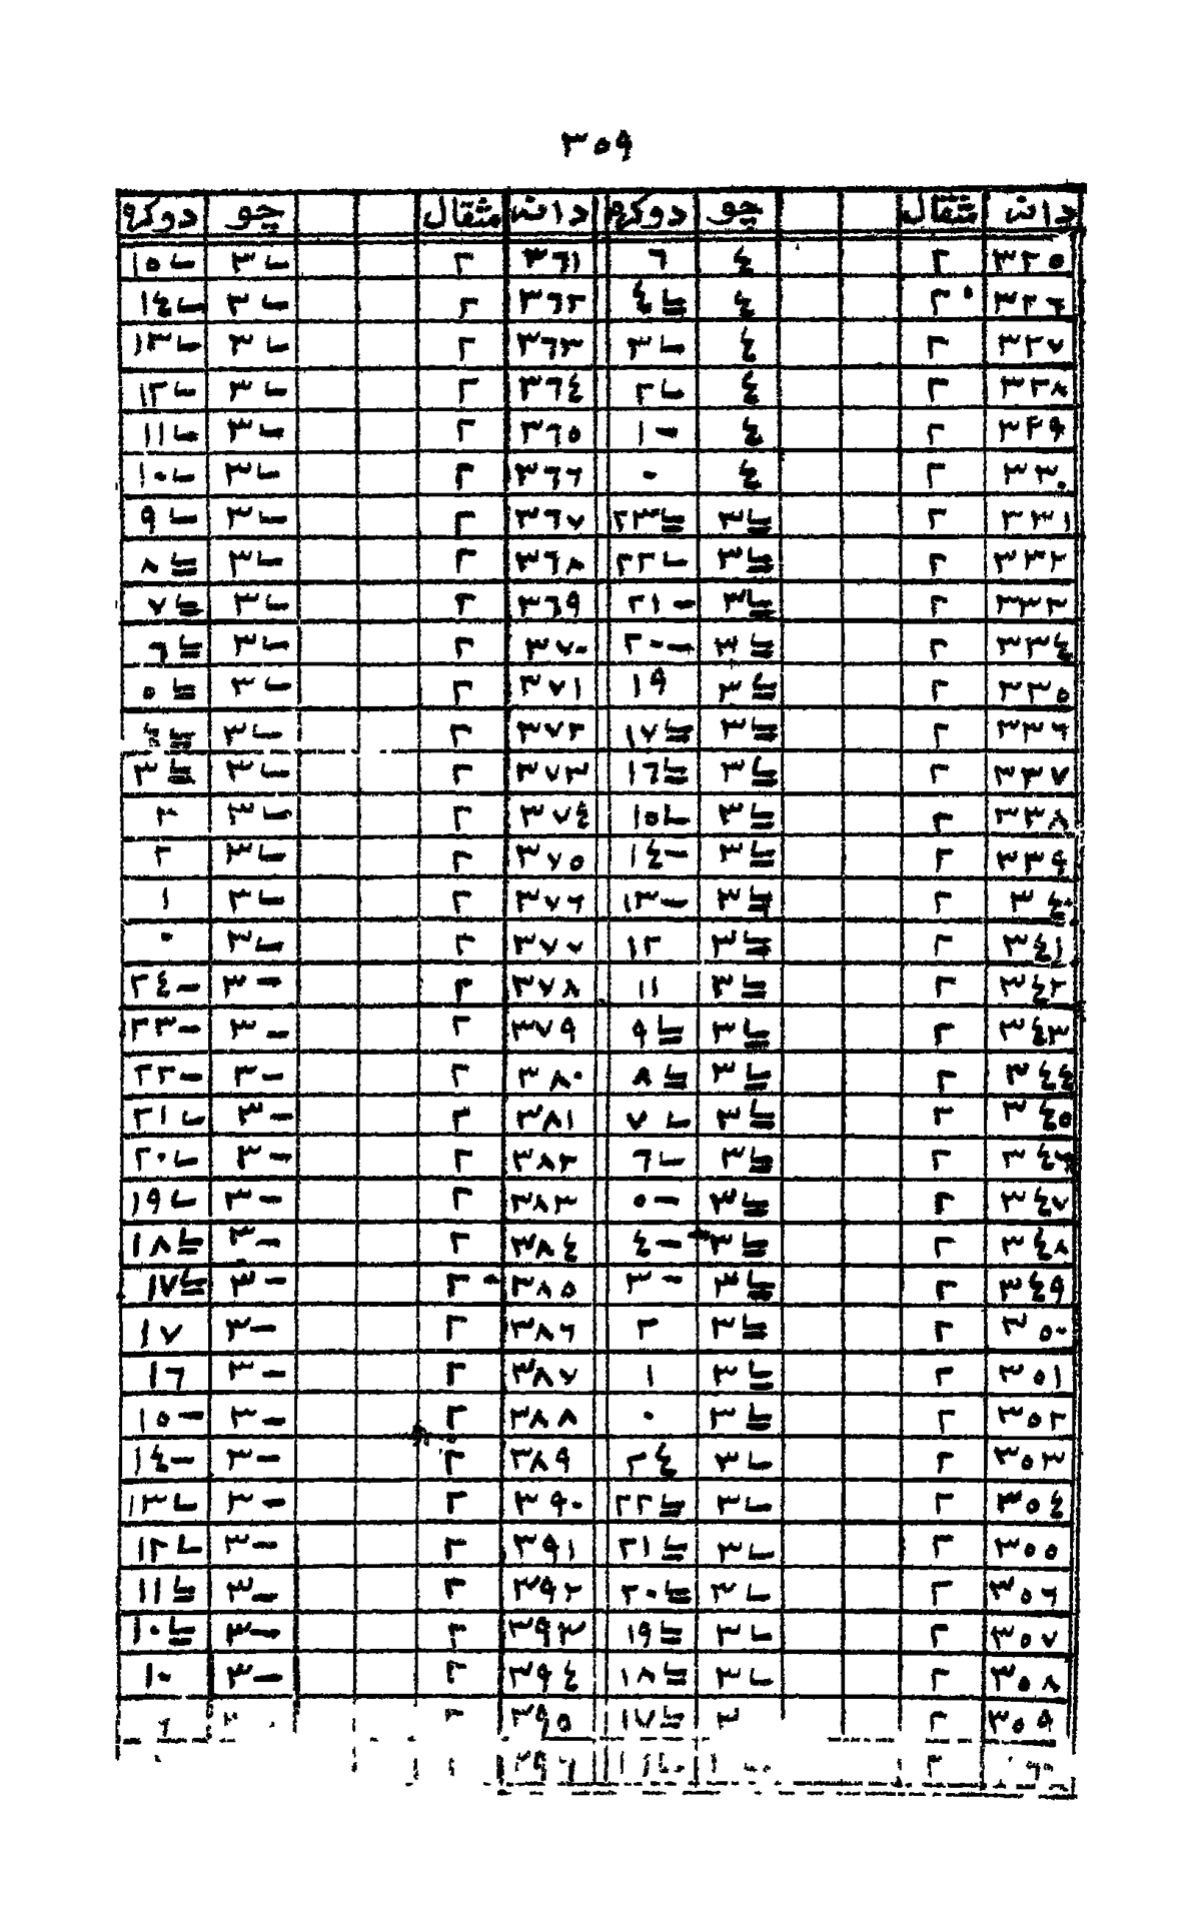 ٣٥٩
دانہ مثقال چو دوكرہ دانہ مثقال چو دوكرہ
٣٢٥ ٢ ٤ ٦ ٣٦١ ٢ ٣ ١٥
٣٢٦ ٢ ٤ ٤ ٣٦٢ ٢ ٣ ١٤
٣٢٧ ٢ ٤ ٣ ٣٦٣ ٢ ٣ ١٣
٣٢٨ ٢ ٤ ٢ ٣٦٤ ٢ ٣ ١٢
٣٢٩ ٢ ٤ ١ ٣٦٥ ٢ ٣ ١١
٣٣٠ ٢ ٤ ٠ ٣٦٦ ٢ ٣ ١٠
٣٣١ ٢ ٣ ٢٣ ٣٦٧ ٢ ٣ ٩
٣٣٢ ٢ ٣ ٢٢ ٣٦٨ ٢ ٣ ٨
٣٣٣ ٢ ٣ ٢١ ٣٦٩ ٢ ٣ ٧
٣٣٤ ٢ ٣ ٢٠ ٣٧٠ ٢ ٣ ٦
٣٣٥ ٢ ٣ ١٩ ٣٧١ ٢ ٣ ٥
٣٣٦ ٢ ٣ ١٧ ٣٧٢ ٢ ٣
٣٣٧ ٢ ٣ ١٦ ٣٧٣ ٢ ٣ ٣
٣٣٨ ٢ ٣ ١٥ ٣٧٤ ٢ ٣ ٣
٣٣٩ ٢ ٣ ١٤ ٣٧٥ ٢ ٣ ٢
٣٤٠ ٢ ٣ ١٣ ٣٧٦ ٢ ٣ ١
٣٤١ ٢ ٣ ١٢ ٣٧٧ ٢ ٣ ٠
٣٤٢ ٢ ٣ ١١ ٣٧٨ ٢ ٣ ٢٤
٣٤٣ ٢ ٣ ٩ ٣٧٩ ٢ ٣ ٢٣
٣٤٤ ٢ ٣ ٨ ٣٨٠ ٢ ٣ ٢٢
٣٤٥ ٢ ٣ ٧ ٣٨١ ٢ ٣ ٢١
٣٤٦ ٢ ٣ ٦ ٣٨٢ ٢ ٣ ٢٠
٣٤٧ ٢ ٣ ٥ ٣٨٣ ٢ ٣ ١٩
٣٤٨ ٢ ٣ ٤ ٣٨٤ ٢ ٣ ١٨
٣٤٩ ٢ ٣ ٣ ٣٨٥ ٢ ٣ ١٧
٣٥٠ ٢ ٣ ٢ ٣٨٦ ٢ ٣ ١٧
٣٥١ ٢ ٣ ١ ٣٨٧ ٢ ٣ ١٦
٣٥٢ ٢ ٣ ٠ ٣٨٨ ٢ ٣ ١٥
٣٥٣ ٢ ٣ ٢٤ ٣٨٩ ٢ ٣ ١٤
٣٥٤ ٢ ٣ ٢٢ ٣٩٠ ٢ ٣ ١٣
٣٥٥ ٢ ٣ ٢١ ٣٩١ ٢ ٣ ١٢
٣٥٦ ٢ ٣ ٢٠ ٣٩٢ ٢ ٣ ١١
٣٥٧ ٢ ٣ ١٩ ٣٩٣ ٢ ٣ ١٠
٣٥٨ ٢ ٣ ١٨ ٣٩٤ ٢ ٣ ١٠
٣٥٩ ٢ ٣ ١٧ ٣٩٥ ٢